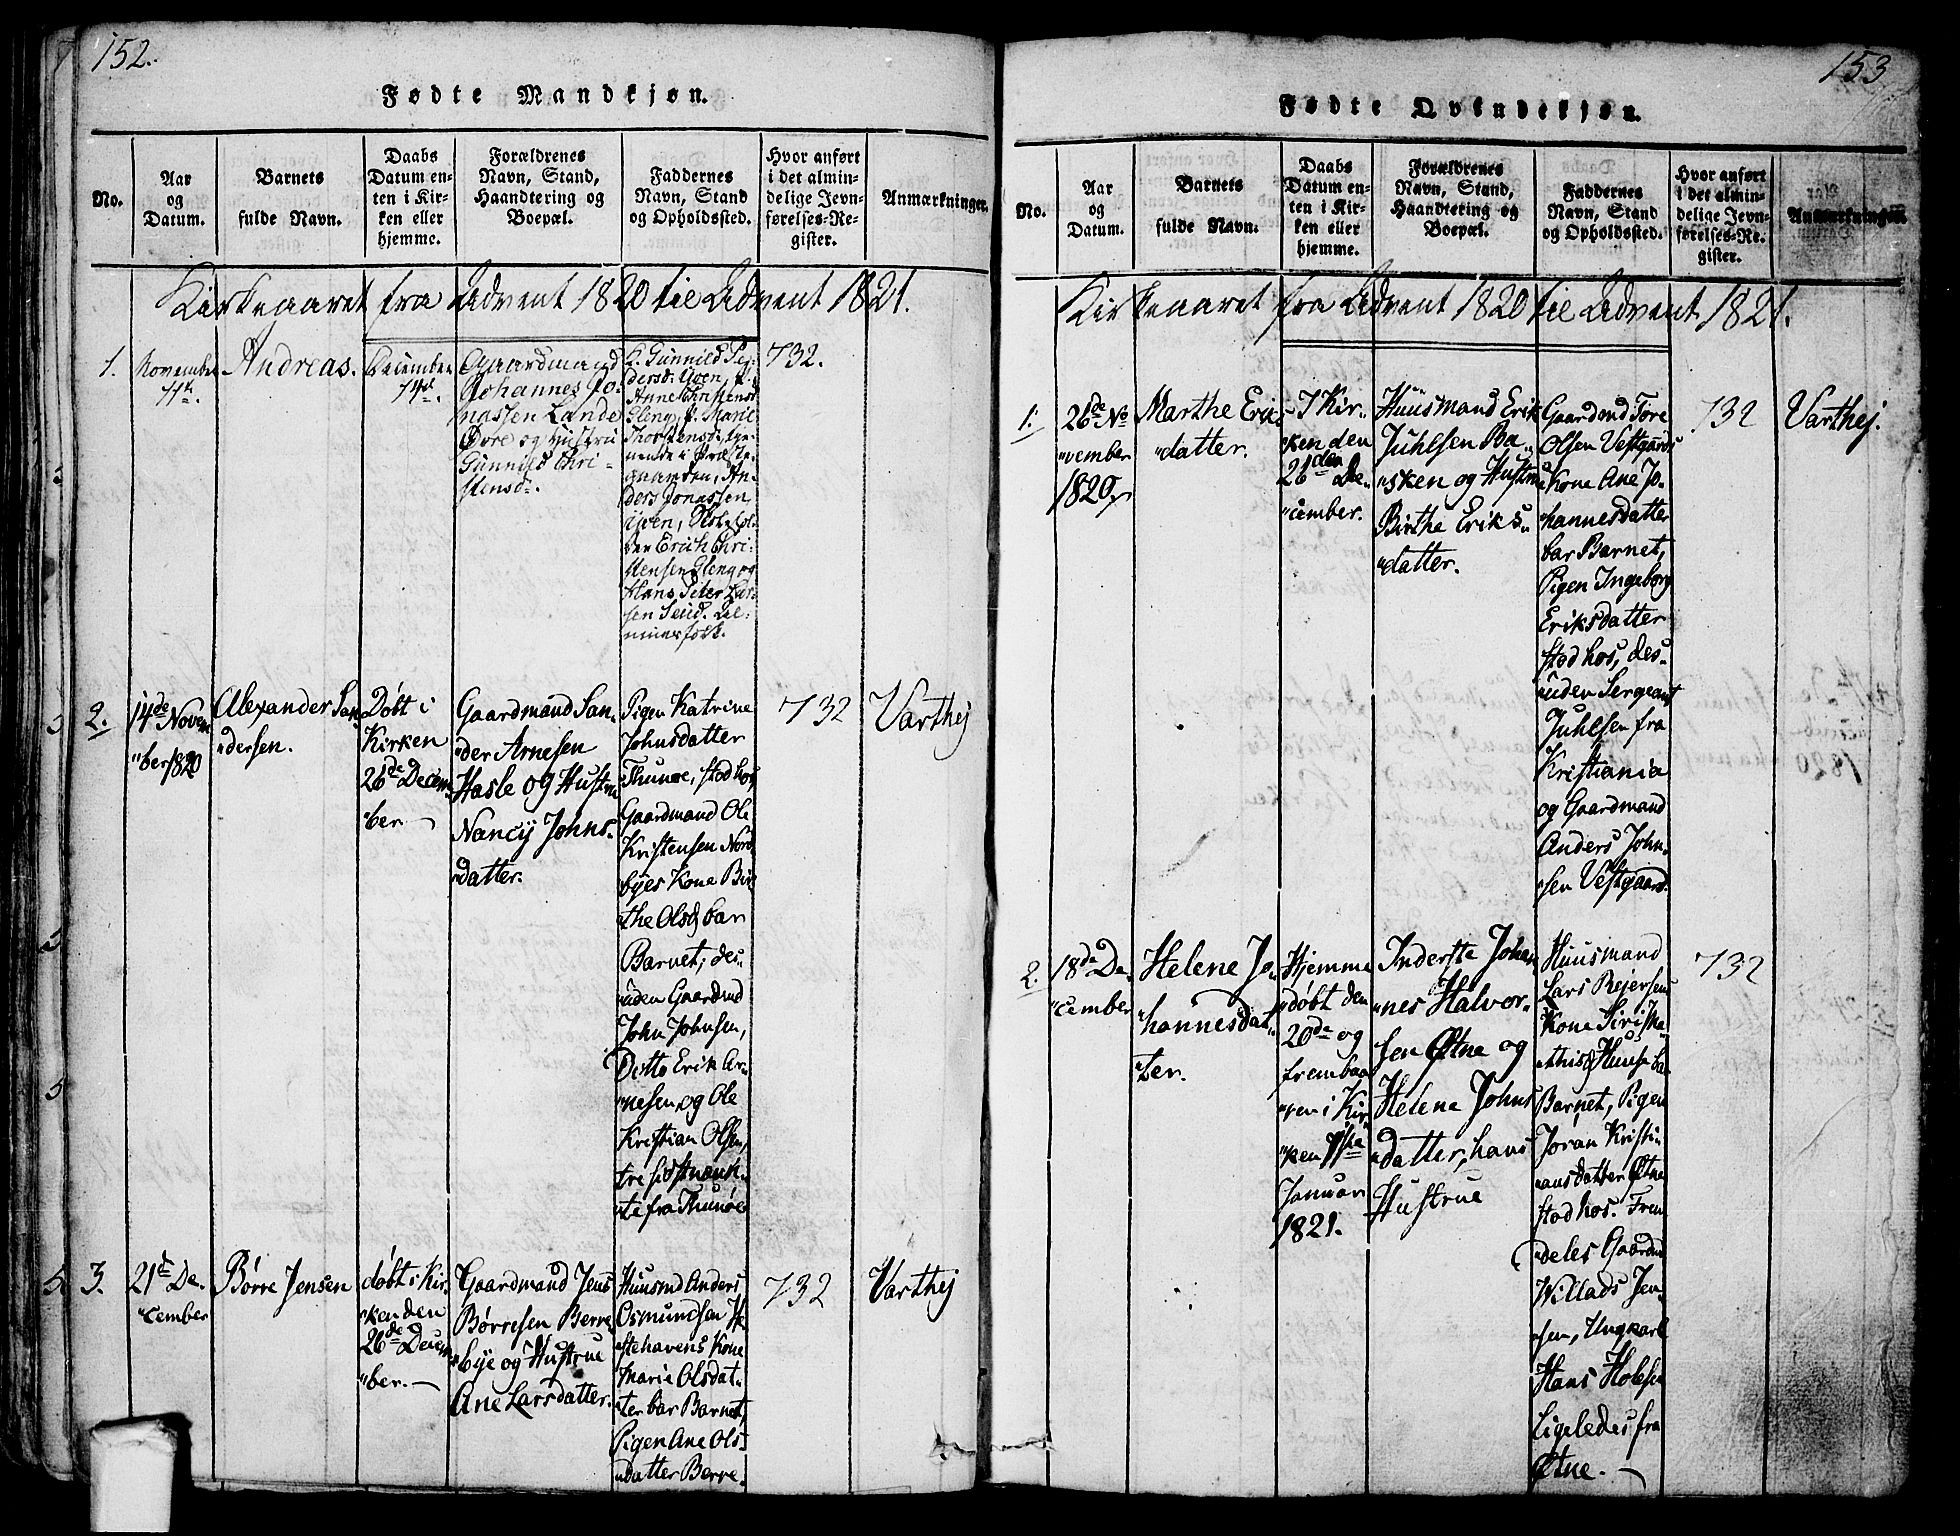 152.
Fødte Mandkjøn.
No.
Aar
og
Datum.
Barnets
fulde Navn.
Daabs
Datum en-
ten i Kir-
ken eller
hjemme.
Forældrenes
Navn, Stand,
Haandtering og
Boepæl.
Faddernes
Navn, Stand
og Opholdssted.
Hvor anført
i det almin-
delige Jevn-
førelses-Re-
gister.
Anmærkninger.
Kirkeaaret fra Advent 1820 til Advent 1821.
1.
November
Andreas.
December
Gaardmand
Johannes Jo-
nassen Lande
Øvre og Hustru
Gunnild Chri-
stensd.
K. Gunnild Pe-
dersd. Yven, P.
Anne Christensd
Gleng, P. Marie
Thorstensd. tje-
nende i Præste-
gaarden, An-
ders Jonassen
Yven,
Erich Chri-
stensen Gleng og
Hans Peter Lar-
sen
732.
2.
14de Novem
"ber 1820
Alexander San-
"dersen.
Døbt i
Kirken
26de Decem-
"ber
Gaardmand San-
"der Arnesen
Hasle og Hustru
Nancÿ Johns-
"datter.
Pigen Katrine
Johnsdatter
Thunøe, stod hos,
Gaardmand Ole
Kristensen Nord
byes Kone Bir
"the Olsd. bar
Barnet; des-
"uden Gaardmd
John Johnsen,
Ditto Erik Ar-
"nesen, og Ole
Kristian Olsen,
tre sidstnævn-
"te fra Thunøe
732
Varthej
3.
21de De-
"cember
Børre Jensen
døbt i Kir-
"ken den
26de Decem-
"ber.
Gaardmand Jens
Børresen Berre-
"bye og Hustrue
Ane Larsdatter.
Huusmd Anders
Osmundsen He
stehavens Kone
Marie Olsdat-
"ter bar Barnet,
Pigen Ane Ols-
"datter Berre-
732
Varthej
153
Fødte Qvindekjøn.
No.
Aar
og
Datum.
Barnets
fulde Navn.
Daabs
Datum en-
ten i Kir-
ken eller
hjemme.
Forældrenes
Navn, Stand,
Haandtering og
Boepæl.
Faddernes
Navn, Stand
og Opholdssted.
Hvor anført
i det almin-
delige Jevn-
førelses-Re-
gister.
Anmærkninger.
Kirkeaaret fra Advent 1820 til Advent 1821.
1.
26de No-
"vember
1820
Marthe Eriks
"datter.
I Kir-
"ken den
26den De-
"cember.
Huusmand Erik
Juhlsen Ba-
"sken og Hustru
Birthe Eriks-
"datter.
Gaardmd Tore
Olsen Vestgaards
Kone Ane Jo-
"hannesdatter
bar Barnet,
Pigen Ingeborg
Eriksdatter
stod hos, des-
"uden Sergeant
Juhlsen fra
Kristiania
og Gaardmand
Anders John-
"sen Vestgaard.
732
Varthej.
2.
18de De-
"cember
Helene Jo-
"hannesdat-
ter.
Hjemme
"døbt den
20de og
frembaa
"ren i Kir-
"ken
Januar
1821.
Inderste Johan
"nes Halvor-
sen Østne og
Helene Johns
"datter, hans
Hustrue
Huusmand
Lars Rejersens
Kone Siri
Barnet, Pigen
Joran Kristi-
"ansdatter Østne
stod hos. Frem
deles Gaardmd
Willads Jen-
"sen, Ungkarl
Hans
ligeledes fra
Østne.
732